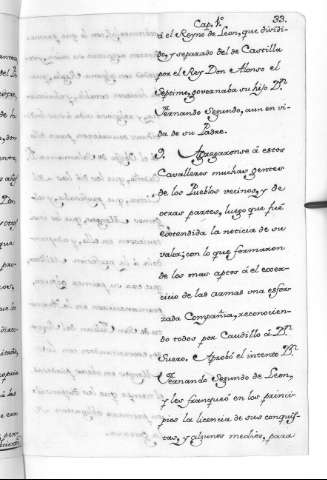 Cap. 1º 33.
á el Reyno de Leon, que dividi-
do, y separado del de Castilla
por el Rey Don Alonso el
Septimo, governaba su hijo Dn.
Fernando Segundo, aun en vi-
da de su Padre.
9. Agregaronse á estos
Cavalleros muchas gentes
de los Pueblos vecinos, y de
otras partes, luego que fué
extendida la noticia de su
valor; con lo que formaron
de los mas aptos á el exer-
cicio de las armas una esfor-
zada Compañia, reconocien-
do todos por Caudillo á Dn.
Suero. Aprobó el intento Dn.
Fernando Segundo de Leon,
y les franqueó en los princi-
pios la licencia de sus conquis-
tas, y algunos medios, para